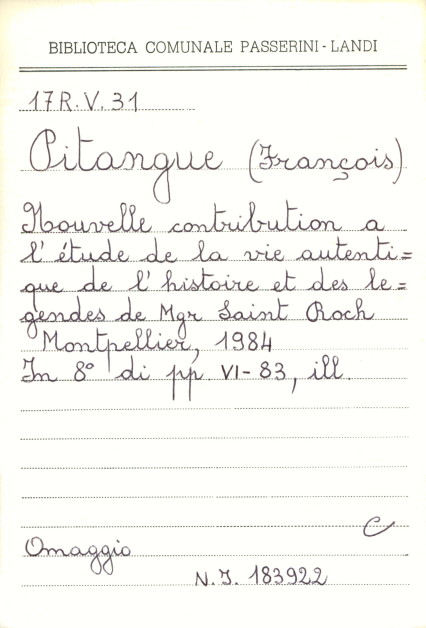 BIBLIOTECA COMUNALE PASSERINI-LANDI
17R.V.31
Pitangue (François)
Nouvelle contribution a
l'étude de la vie autenti=
que de l'histoire et des le=
gendes de Mgr Saint Roch
Montpellier, 1984
In 8° di pp. VI-83, ill.
C
Omaggio
N.I. 183922